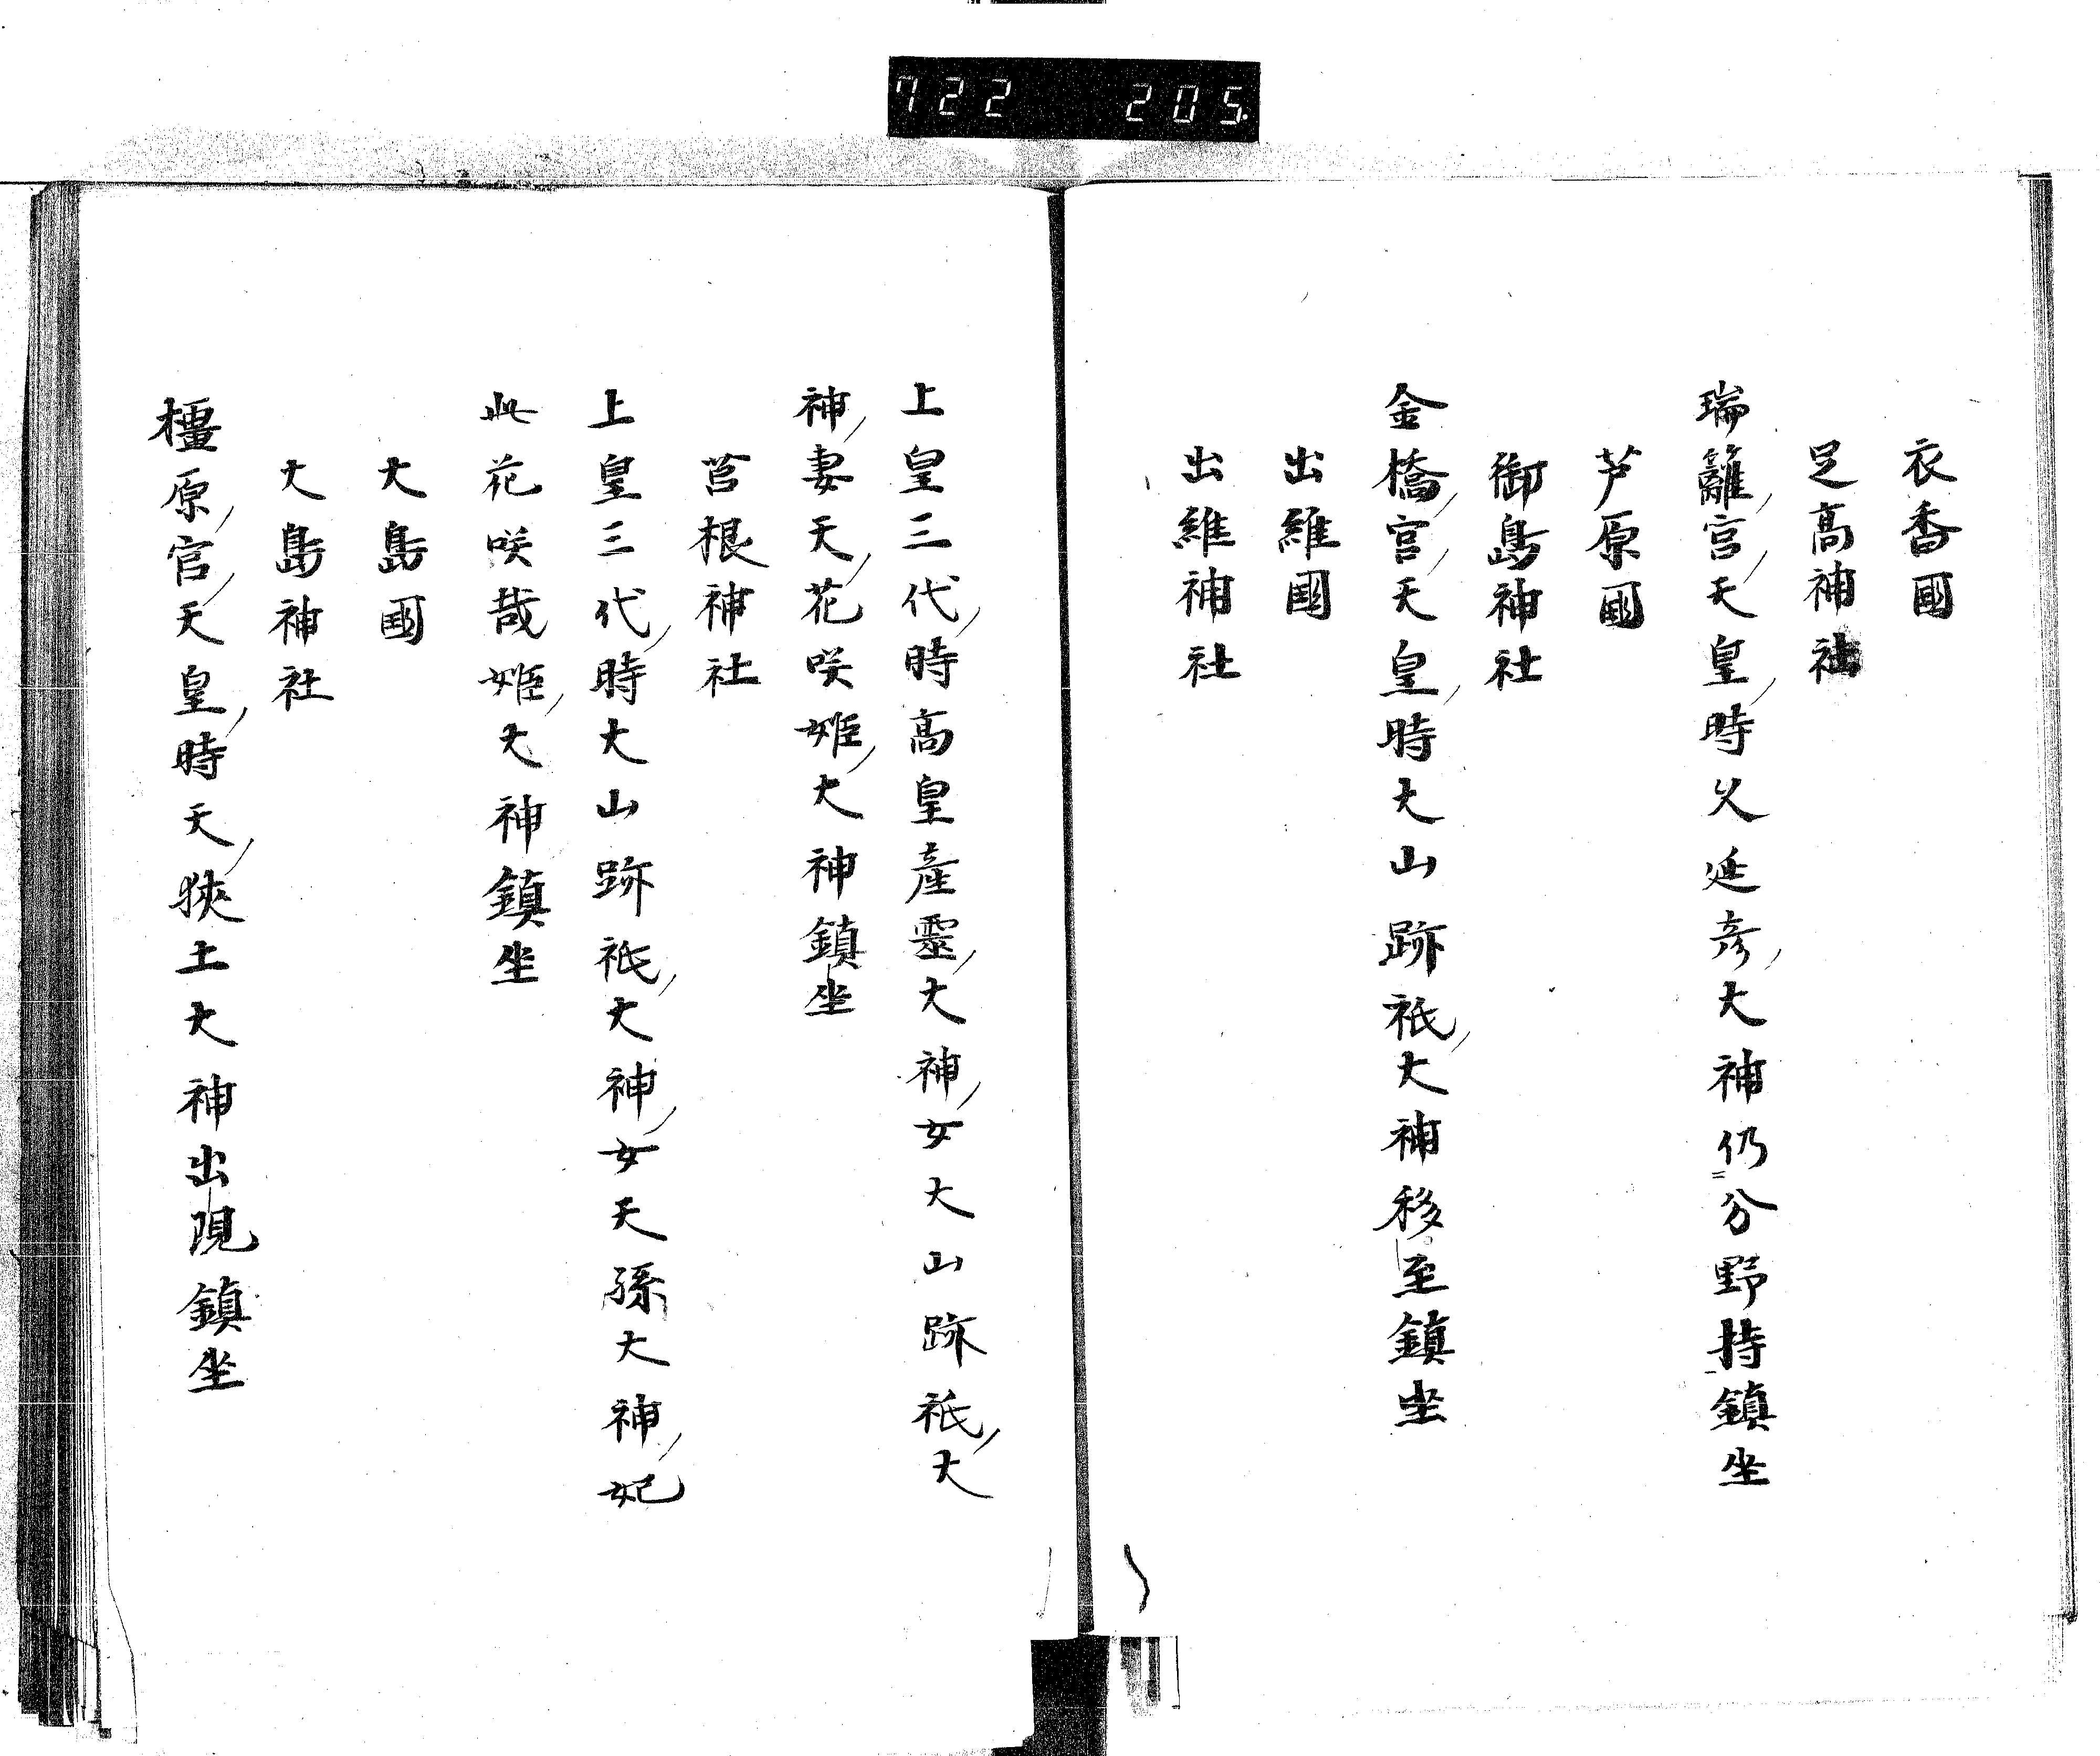 722 205.
衣香國
足高神社
瑞籬宮天皇時火延彦大神仍分野持鎮坐
芦原國
御島神社
金橋宮天皇時大山跡祇大神移至鎮坐
出維國
出維神社
上皇三代時高皇産靈大神女大山跡祇大
神妻天花咲姫大神鎮坐
筥根神社
上皇三代時大山跡祇大神女天孫大神妃
此花咲哉姫大神鎮坐
大島國
大島神社
橿原宮天皇時天狹土大神出現鎮坐